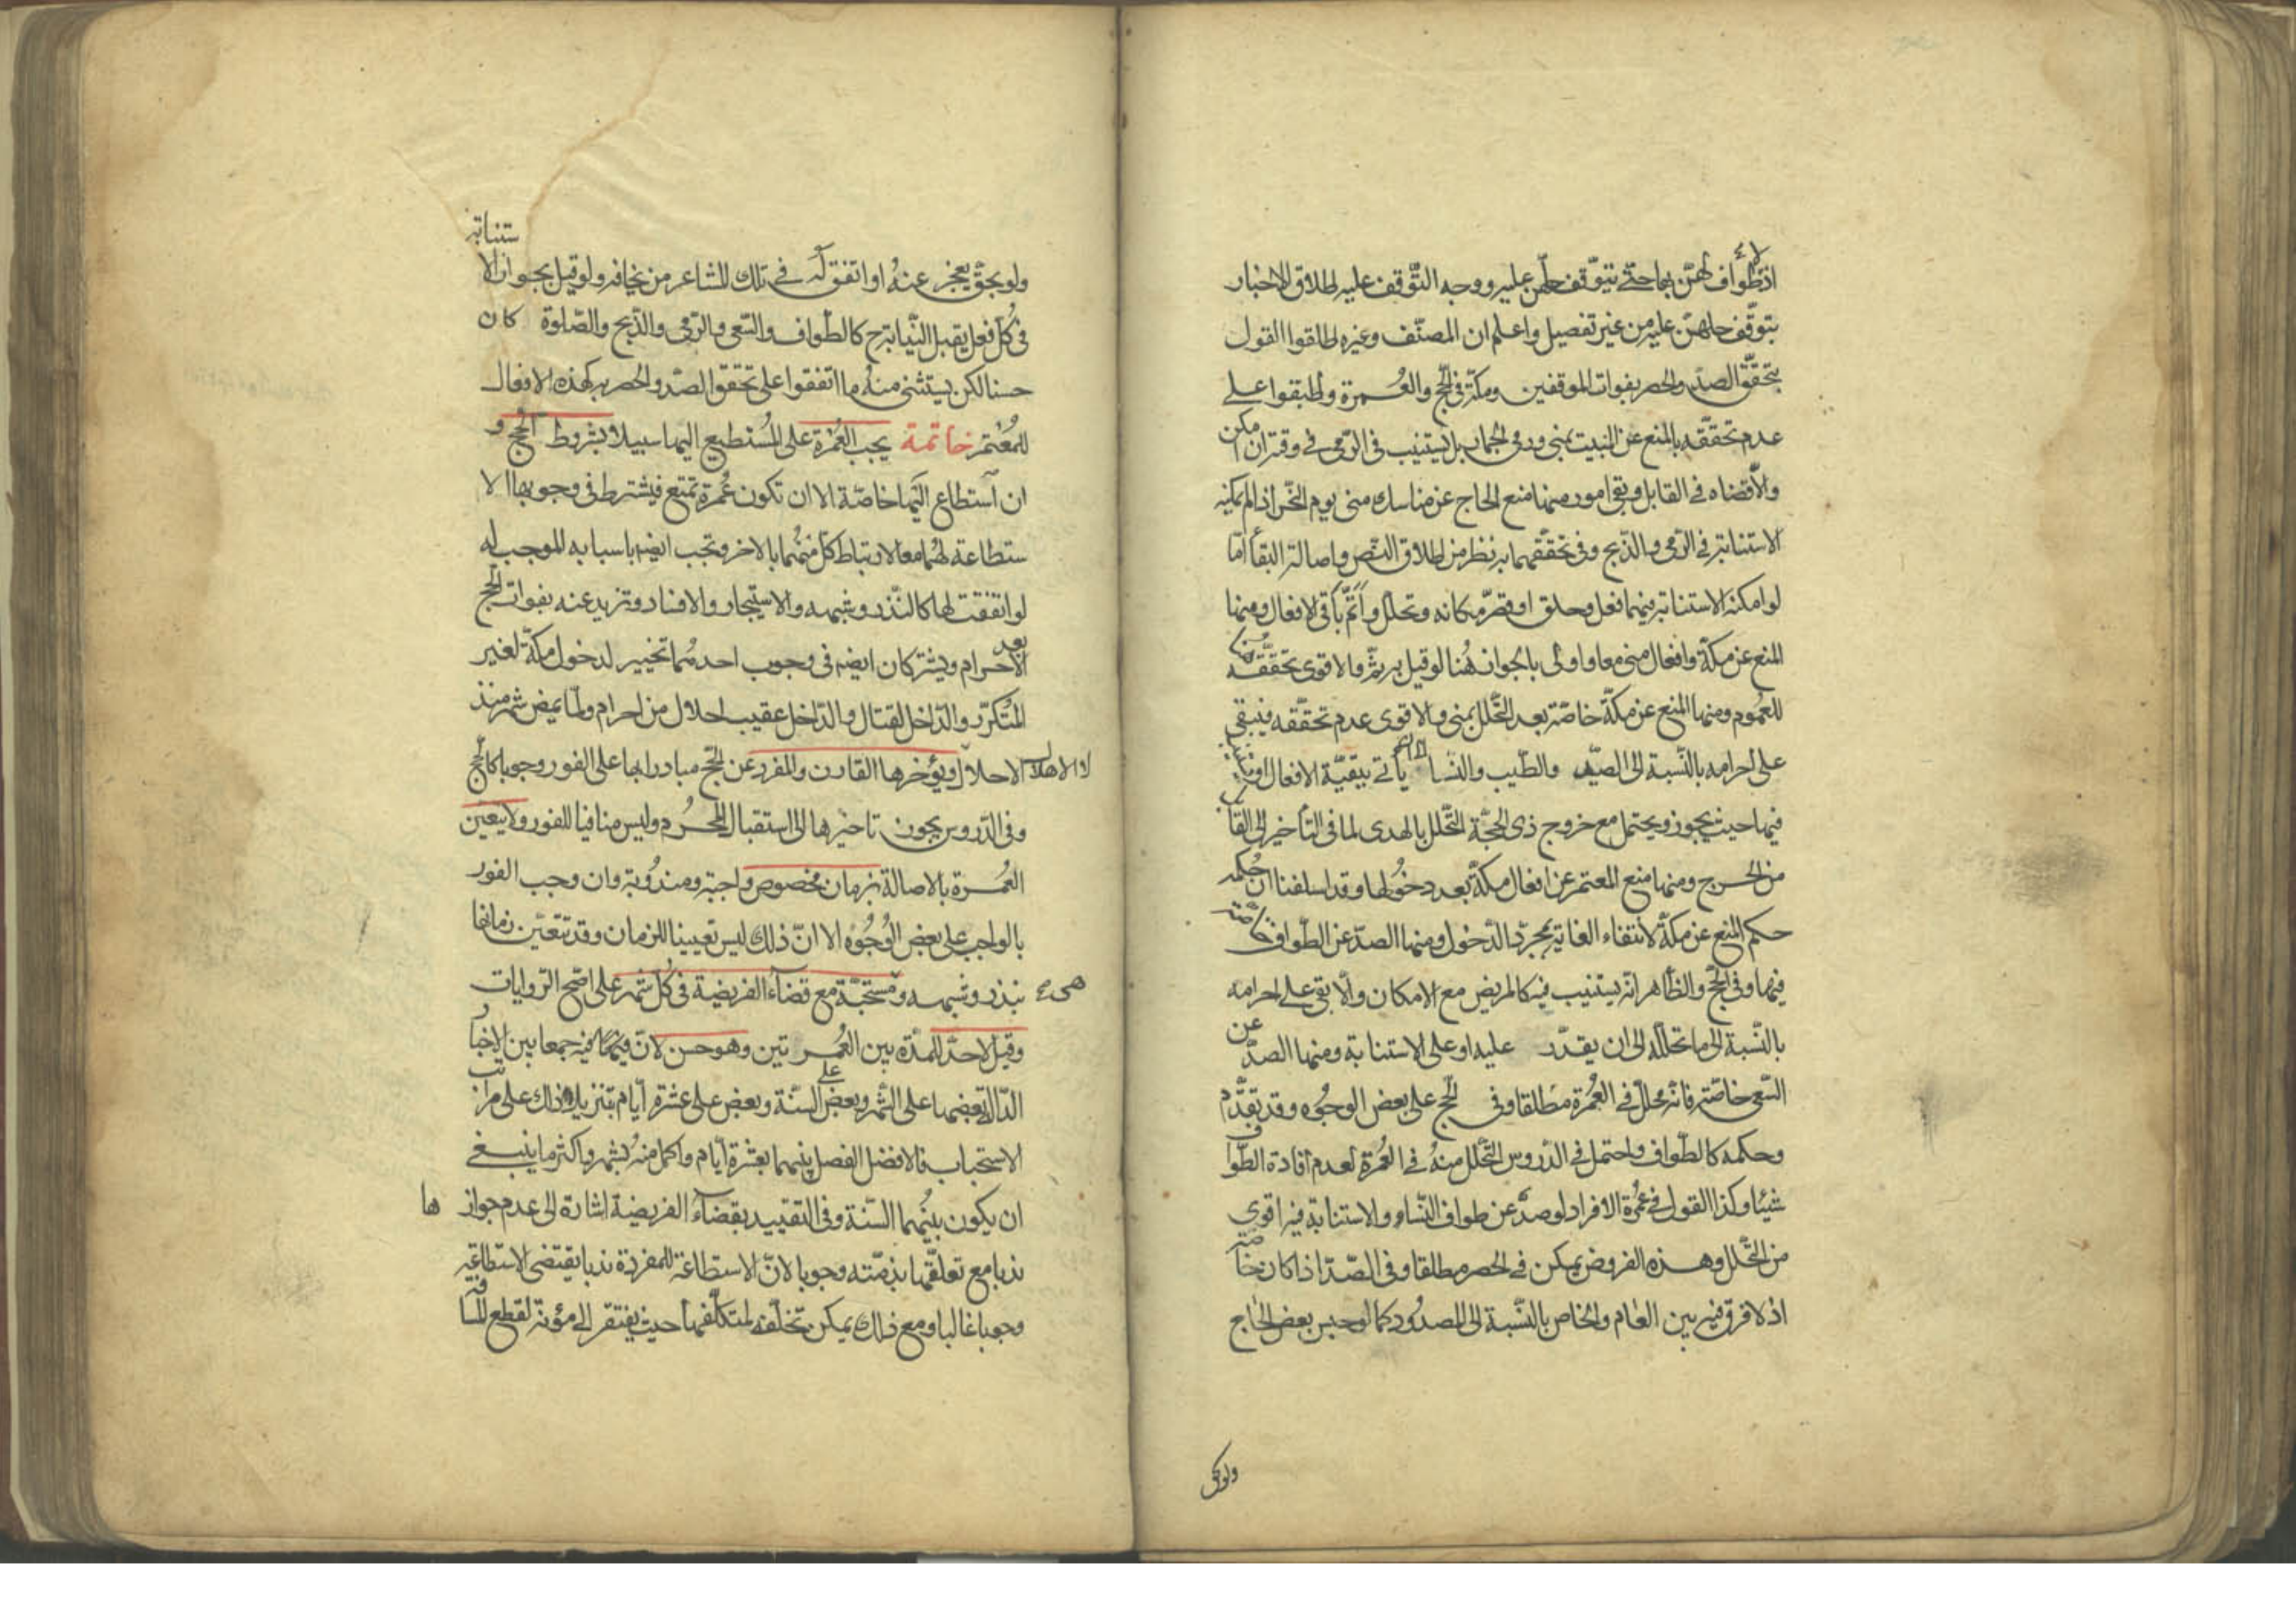 اذ لا طواف لهنّ بها حتّى يتوقف حلّهن عليه ووجه التّوقف عليه اطلاق الاخبار
بتوقّف حلهنّ عليه من غير تفصيل واعلم ان المصنّف وغيره اطلقوا القول
بتحقّق الصدّ والحصر بفوات الموقفين ومكّة في الحّج والعُمرة واطبقوا على
عدم تحققه بالمنع عن المبيت بمنى ورمى الجمار بل يستنيب في الرّمى في وقته ان امكن
والاّ قضاه في القابل وبقى امور منها منع الحاج عن مناسك منى يوم النحّر اذا لم يمكنه
الاستنابة في الرّمى والذّبح وفى تحقّقهما به نظر من اطلاق النّص واصالة البقأ امّا
لو امكنه الاستنابة فيهما فعل وحلق او قصّر مكانه وتحلّل واتمّ باقى الافعال ومنها
المنع عن مكّة وافعال منى معا واولى بالجواز هُنا لو قيل به ثمّ والاقوى تحقّقه هنا
للعُموم ومنها المنع عن مكّة خاصّة بعد التّحلل بمنى والاقوى عدم تحقّقه فيبقى
على احرامه بالنّسبة الى الصّيد والطّيب والنّسا الى ان يأتى ببقيّة الافعال او يستنيب
فيها حيث يجوز ويحتمل مع خروج ذى الحجّة التّحلل بالهدى لما في التأخير الى القابل
من الحرج ومنها منع المعتمر عن افعال مكّة بعد دخولها وقد اسلفنا ان حُكمه
حكم المنع عن مكّة لانتفاء الغاية بمجرّد الدّخول ومنها الصدّ عن الطّواف خاصّة
فيها وفى الحّج والظّاهر انّه يستنيب فيه كالمريض مع الامكان والاّ بقى على احرامه
بالنّسبة الى ما تحلّله الى ان يقدّر عليه او على الاستنابة ومنها الصدّ عن
السّعى خاصّة فانّه محلّل في العُمرة مطلقا وفى الحّج على بعض الوجُوه وقد تقدّم
وحكمه كالطّواف واحتمل في الدّروس التّحلل منهُ في العُمرة لعدم افادة الطّواف
شيئا وكذا القول في عُمرة الافراد لو صدّ عن طواف النّساء والاستنابة فيه اقوى
من التّحلل وهذه الفروض يمكن في الحصر مطلقا وفى الصّد اذا كان خاصّة
اذ لا فرق فيه بين العام والخاص بالنّسبة الى المصدُود كما لو حبس بعض الحاج
ولو بحق
ولو بحقّ يعجز عنهُ او اتفق له في تلك المشاعر من يخافه ولو قيل بجواز الاستنابة
في كُل فعل يقبل النّيابة ح كالطّواف والسّعى والرّمى والذّبح والصّلوة كان
حسنا لكن يستثنى منهُ ما اتّفقوا على تحقق الصدّ والحصر به كهذه الافعال
للمُعتمر خاتمة يجب العُمرة على المُستطيع اليها سبيلا بشروط الحج و
ان استطاع اليّها خاصّة الا ان تكون عُمرة تمتع فيشترط في وجوبها الا
ستطاعة لهُما معا لارتباط كلّ منهُما بالاخر وتجب ايضا باسبابه الموجبة له
لو اتفقت لها كالنّذر وشبهه والاستيجار والافساد وتزيد عنه بفوات الحّج
بعد الاحرام ويشتركان ايضا في وجوب احدهُما تخييرا لدخول مكّة لغير
المُتكرّر والدّاخل لقتال والدّاخل عقيب احلال من احرام ولمّا يمض شهر منذ
الاحلال لا الاهلال ويُؤخرها القارن والمفرد عن الحّج مبادرا بها على الفور وجوبا كالحج
وفى الدّروس يجوز تاخيرها الى استقبال المحرّم وليس منافيا للفور ولا يتعيّن
العُمرة بالاصالة بزمان مخصوص واجبة ومندُوبة وان وجب الفور
بالواجب على بعض الوُجُوه الا انّ ذلك ليس تعيينا للزمان وقد تتعيّن زمانها
بنذر وشبهه وهى مُستحبّة مع قضاء الفريضة في كُل شهر على اصّح الرّوايات
وقيل لا حدّ للمدّة بين العُمرتين وهو حسن لانّ فيه جمعا بين الاخبار
الدّال بعضها على الشّهر وبعض على السّنة وبعض على عشرة ايّام بتنزيل ذلك على مراتب
الاستحباب فالافضل الفصل بينهما بعشرة ايّام واكمل منه بشهر واكثر ما ينبغى
ان يكون بينُهما السّنة وفى التقييد بقضاء الفريضة اشارة الى عدم جوازها
ندبا مع تعلقّها بذمّته وجوبا لانّ الاستطاعة للمفردة ندبا يقتضى الاستطاعة
وجوبا غالبا ومع ذلك يمكن تخلّفه لمتكلّفها حيث يفتقر الى مؤنة لقطع المسافة